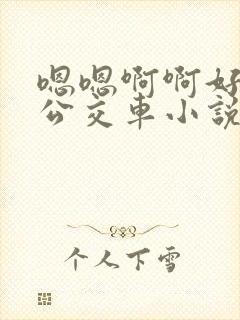 嗯嗯啊啊好
公交車小說
个人下雪